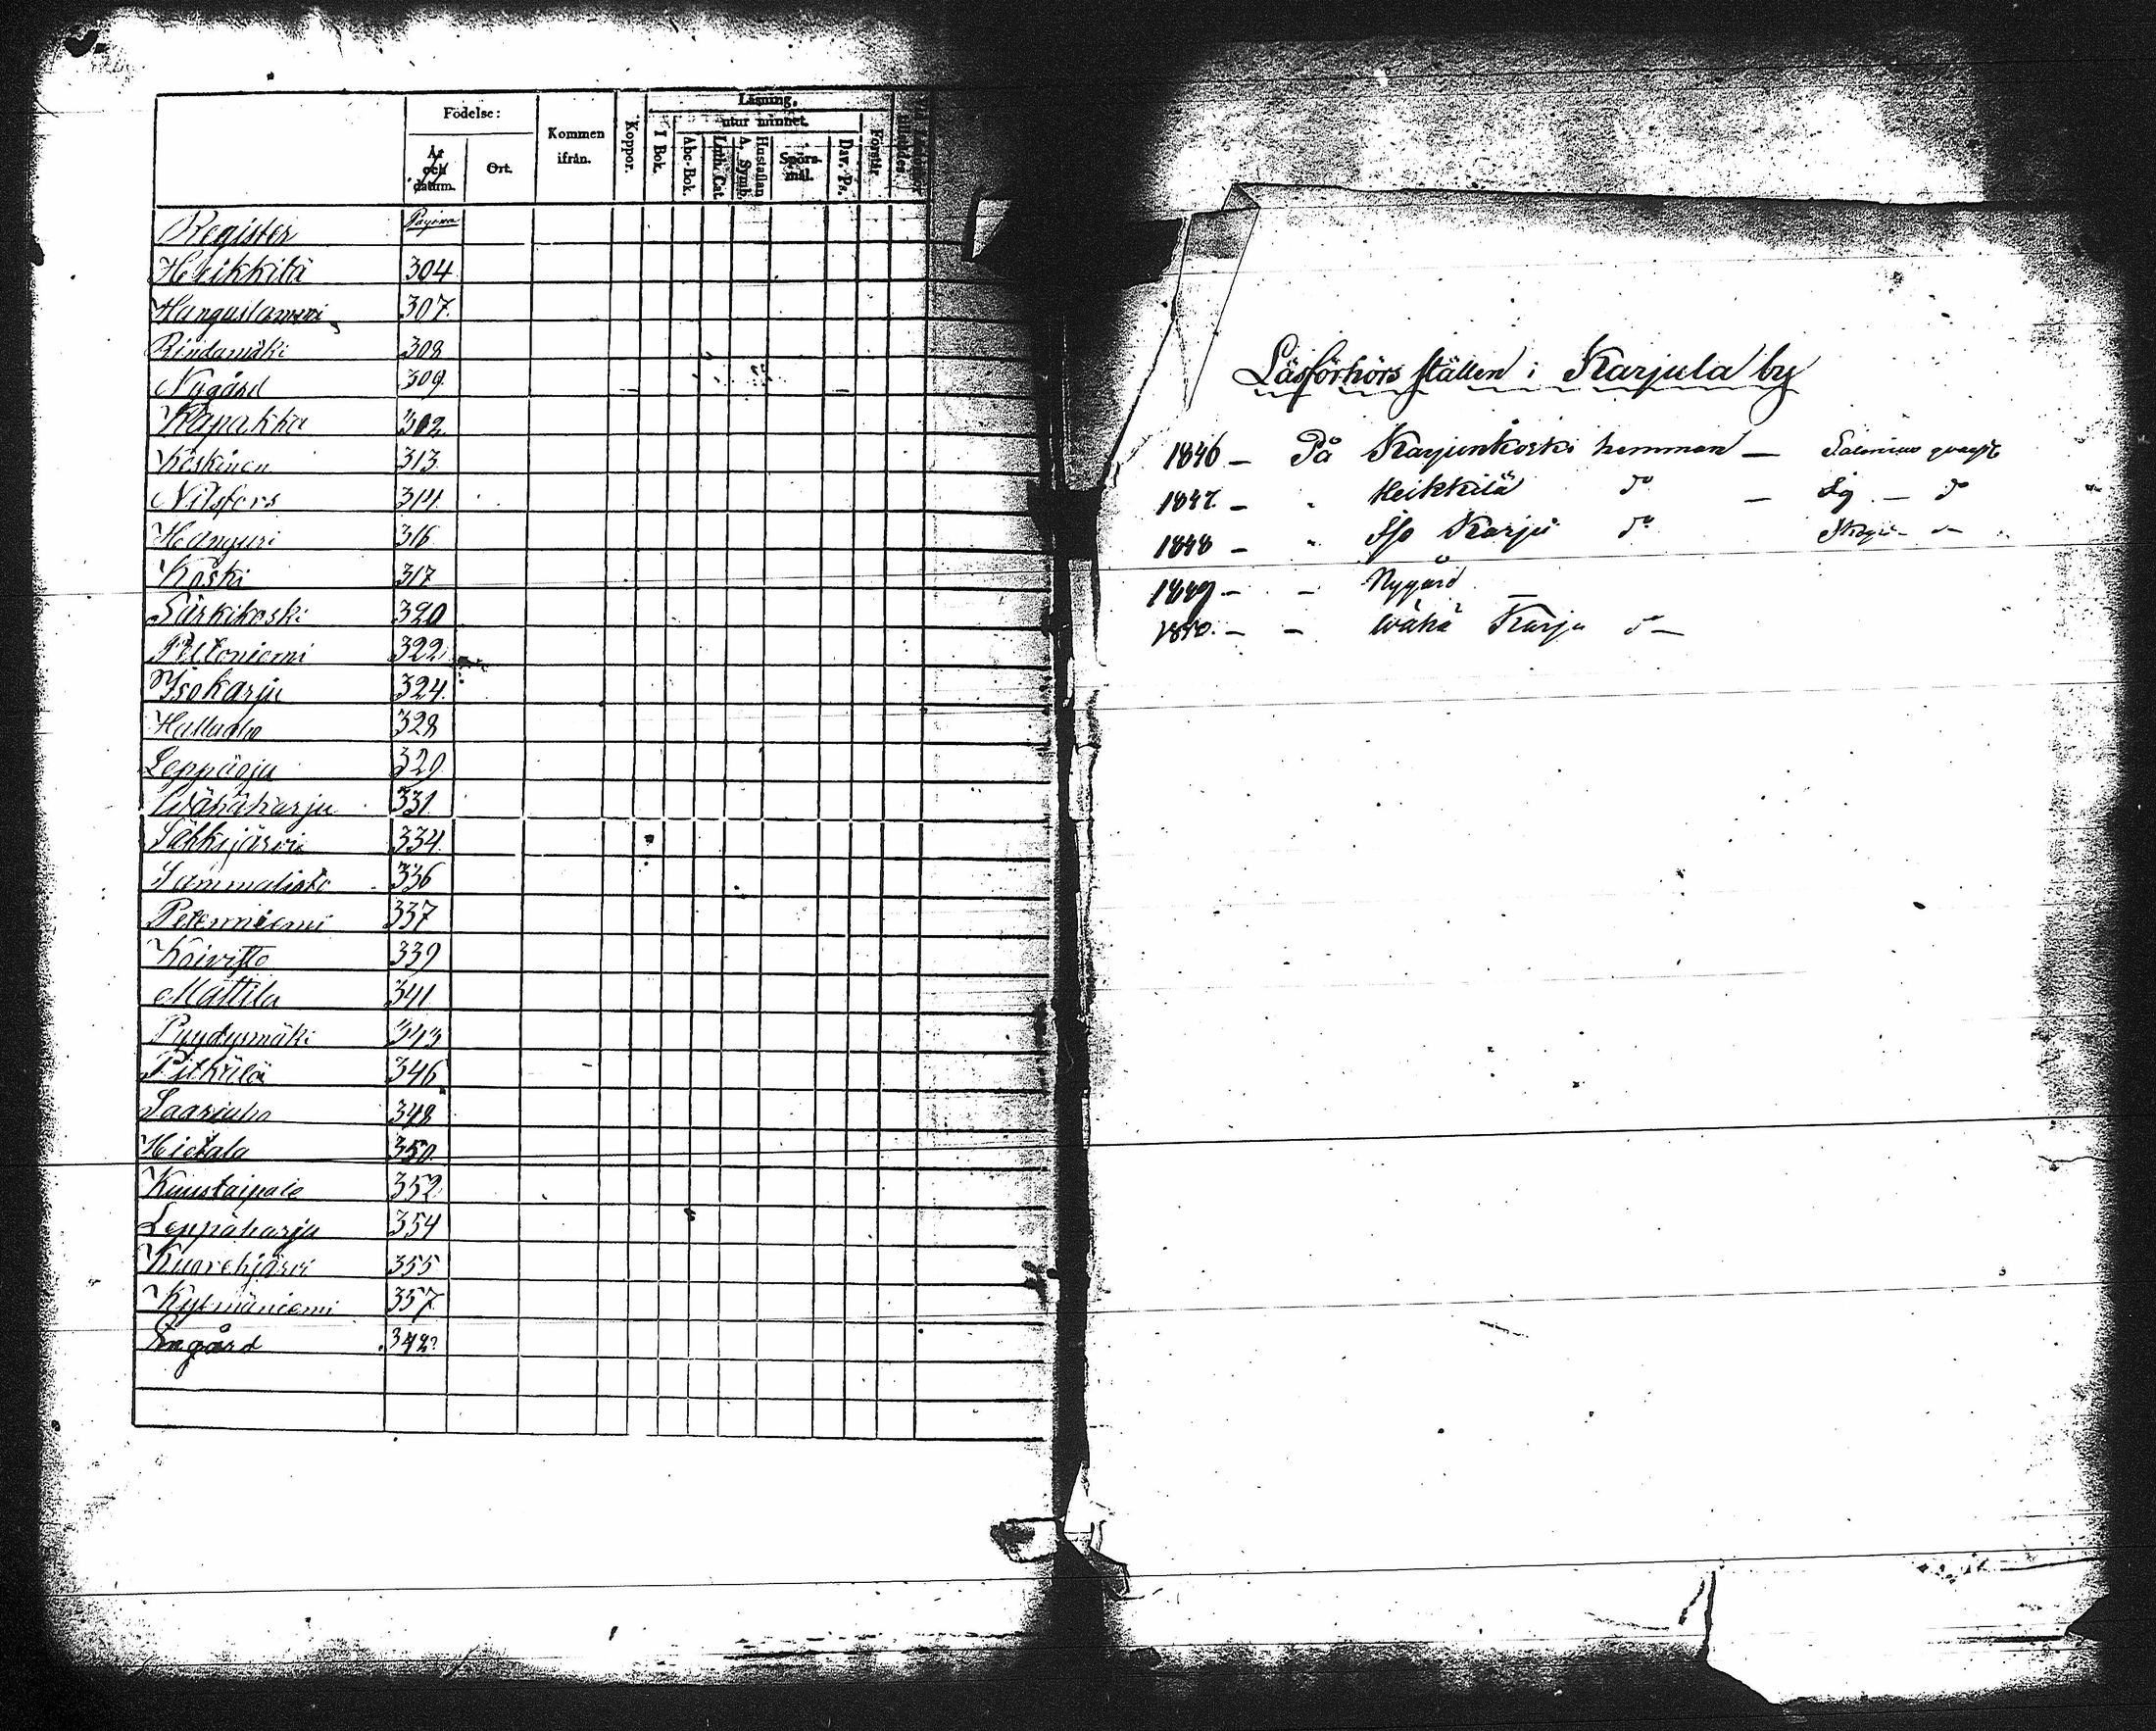 Födelse:
År och datum.
Ort.
Kommen ifrån.
Koppor.
Läsning,
I Bok.
utur minnet.
Abc-Bok.
Luth. Cat.
Hustaflan A. Symb.
Spörs-mål.
Dav. Ps.
Förstår
Register Pagina
Heikkilä 304
Hanguslammi 307
Rindamäki 308
Nygård 309
Kapakka 312
Keskinen 313
Nilsfors 314
Hanguri 316
Koski 317
Särkikoski 320
Peltoniemi 322
Isokarju 324
Halluaho 328
Leppäoja 329
Wähäkarju 331
Säkkijärvi 334
Sammalisto 336
Petenniemi 337
Koivisto 339
Mattila 341
Puydysmäki 343
Pitkälä 346
Saariaho 348
Hietala 350
Kuustaipale 352
Leppäharju 354
Kuorehjärvi 355
Kytmäniemi 357
Engård 342
Läsförhörs ställen i Karjula by
1846 – På Karjunkoski hemman –
1847 – " Heikkilä do –
1848 – " Iso Karju do
1849 – – Nygård
1850. – – Wähä Karju do –